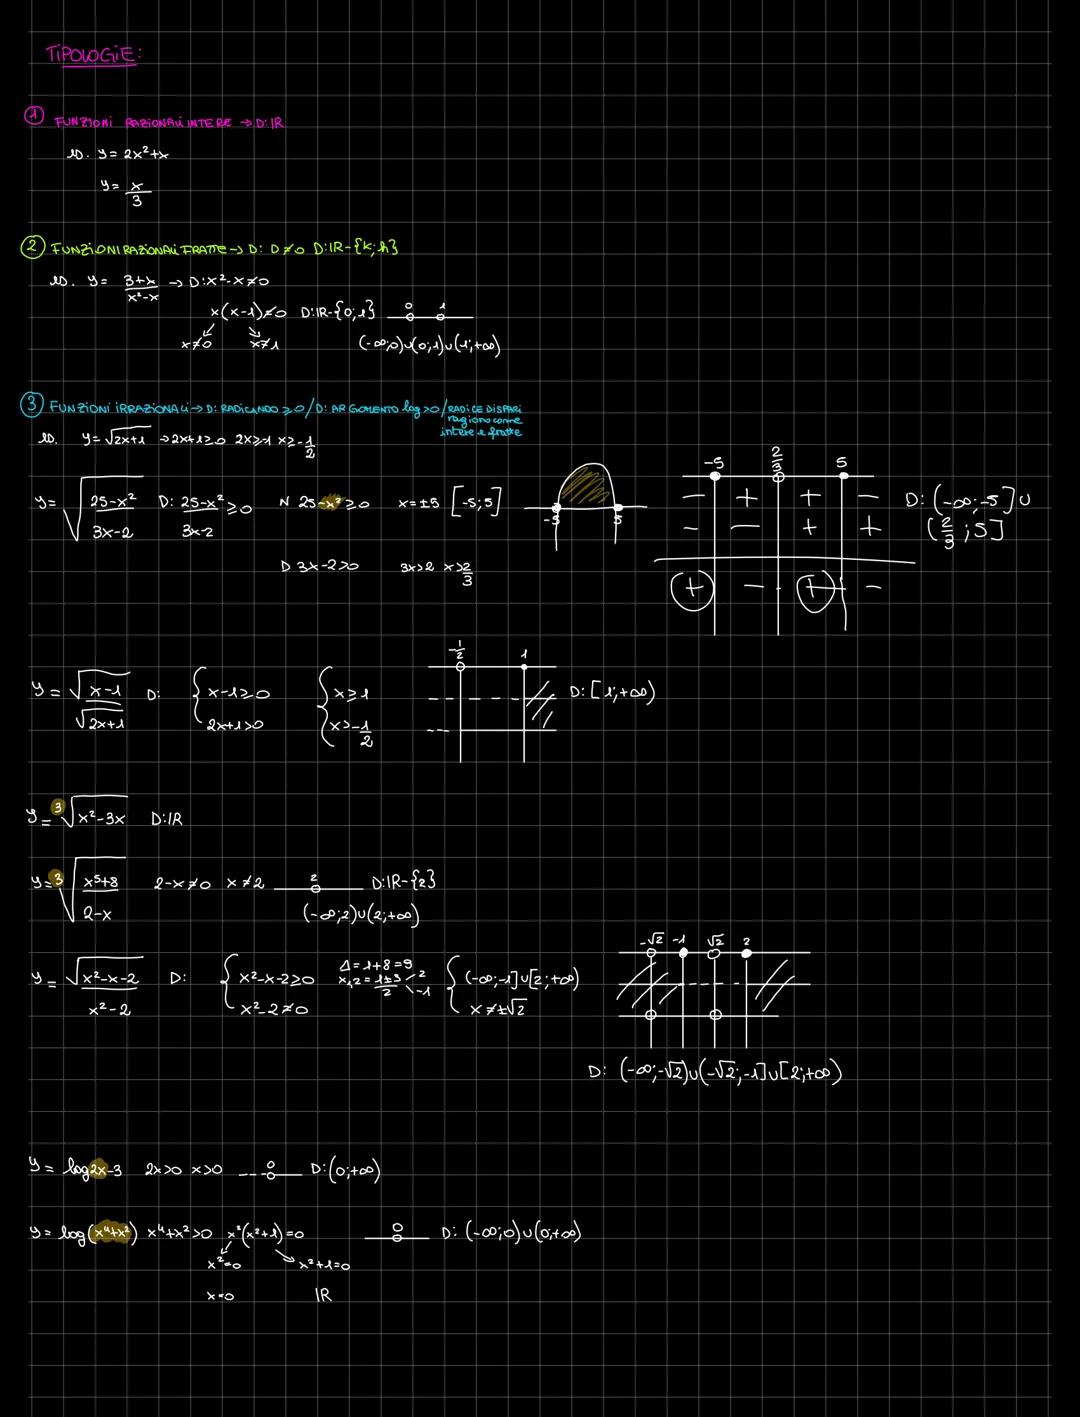 TIPOLOGIE:
① FUNZIONI RAZIONALI INTERE → D:IR
es. y = 2x²+x
y = x/3
② FUNZIONI RAZIONALI FRATTE → D: D≠0 D:IR-{k;h}
es. y = (3+x)/(x²-x) → D:x²-x≠0
x(x-1)≠0 D:IR-{0;1} 0 1
x≠0 x≠1 (-∞;0)∪(0;1)∪(1;+∞)
③ FUNZIONI IRRAZIONALI → D: RADICANDO ≥0 / D: ARGOMENTO log >0 / RADICE DISPARI
ragiono come
intere e fratte
es. y = √(2x+1) → 2x+1≥0 2x≥-1 x≥-1/2
y = √((25-x²)/(3x-2)) D: (25-x²)/(3x-2) ≥0 N 25-x²≥0 x=±5 [-5;5] -5 5
D 3x-2>0 3x>2 x>2/3
-5 2/3 5
- + + -
- - + +
+ - + -
D: (-∞;-5]∪
(2/3;5]
y = √(x-1)/√(2x+1) D: { x-1≥0 { x≥1 -1/2 1 D: [1;+∞)
2x+1>0 x>-1/2
y = ³√(x²-3x) D:IR
y = ³√((x⁵+8)/(2-x)) 2-x≠0 x≠2 2 D:IR-{2}
(-∞;2)∪(2;+∞)
y = √(x²-x-2)/(x²-2) D: { x²-x-2≥0 Δ=1+8=9 { (-∞;-1]∪[2;+∞) -√2 -1 √2 2
x²-2≠0 x1,2 = (1±3)/2 2 -1 x≠±√2
D: (-∞;-√2)∪(-√2;-1]∪[2;+∞)
y = log2x-3 2x>0 x>0 0 D:(0;+∞)
y = log(x⁴+x²) x⁴+x²>0 x²(x²+1)=0 0 D: (-∞;0)∪(0;+∞)
x²=0 x²+1=0
x=0 IR